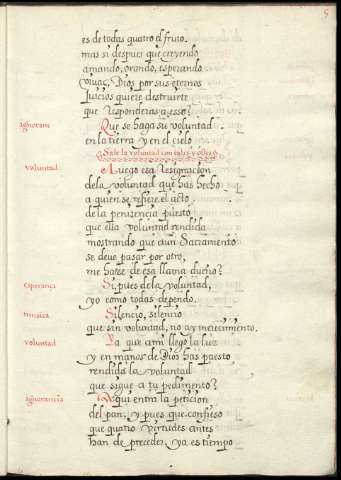 5
es de todas quatro el fruto.
mas si despues que creyendo
amando, orando, esperando
vivas, Dios por sus eternos
Juicios quiere destruirte
que responderas a esso?
Ignoranci Que se haga su voluntad
en la tierra y en el cielo
Sale la voluntad con
voluntad. Luego esa Resignacion
dela voluntad que has hecho
a quien se refiere el acto
de la penitencia puesto
que ella voluntad rendida
mostrando que aun Sacramento
se deve pasar por otro,
me hatse de esa llama dueño?
esperança Si, pues dela voluntad,
yo como todas dependo.
musica Silencio, silencio
que sin voluntad, no ay merecimiento.
voluntad Ya que ami llego la luz
y en manos de Dios has puesto
rendida la voluntad
que sigue a tu pedimento?
Ignorancia Aqui entra la peticion
del pan, y pues que confieso
que quatro virtudes antes
han de preceder, ya es tiempo